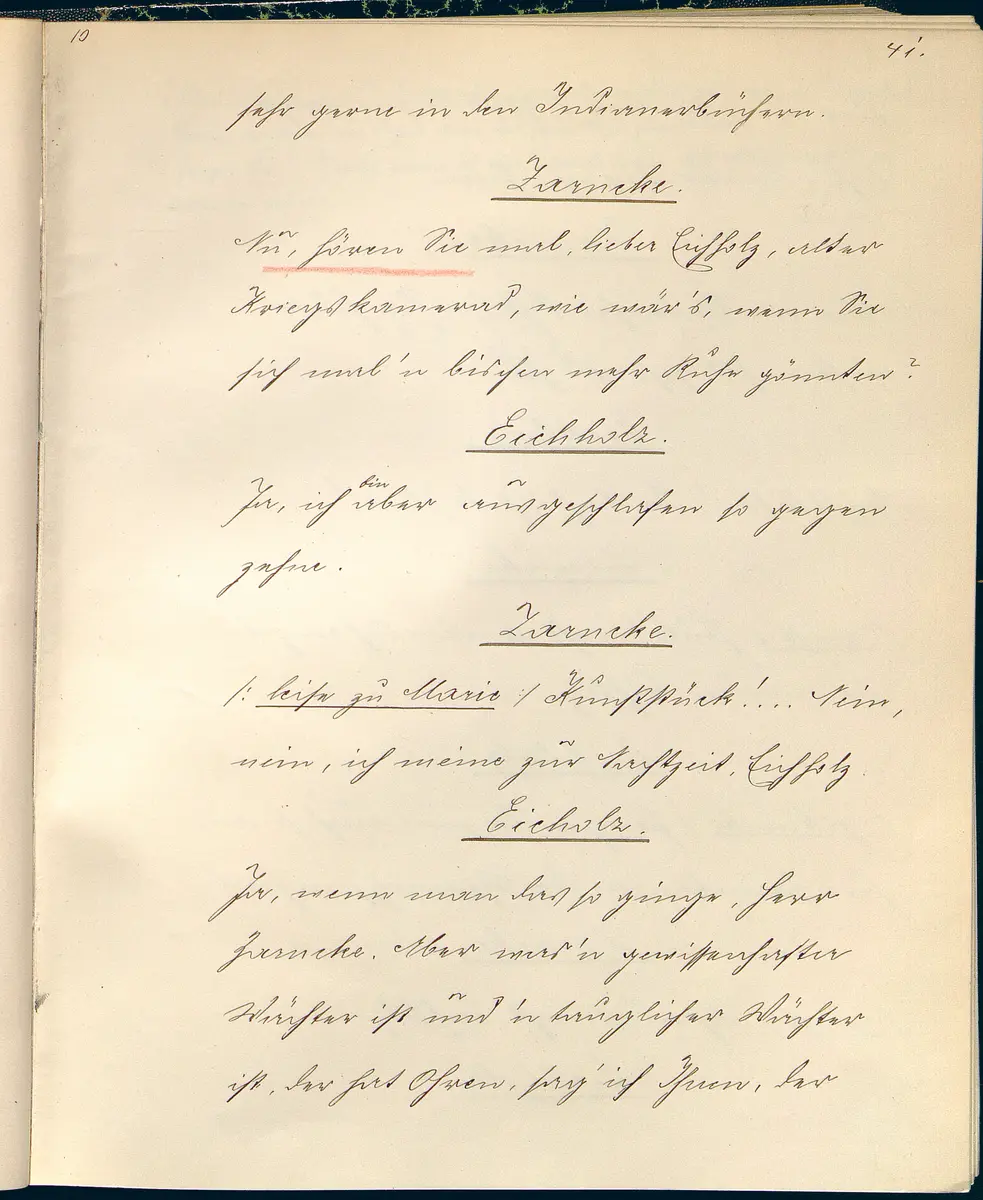 10
41.
sehr gerne in den Indianerbüchern.
Zarncke.
Nu, hören Sie mal, lieber Eichholz, alter
Kriegskamerad, wie wär's, wenn Sie
sich mal 'n bischen mehr Ruhe gönnten?
Eichholz.
Ja, ich bin aber ausgeschlafen so gegen
zehne.
Zarncke.
/: leise zu Marie :/ Kunststück!.... Nein,
nein, ich meine zur Nachtzeit, Eichholz.
Eicholz.
Ja, wenn man das so ginge, Herr
Zarncke. Aber was'n gewissenhafter
Wächter ist und 'n tauglicher Wächter
ist, der hat Ohren, sag' ich Ihnen, der